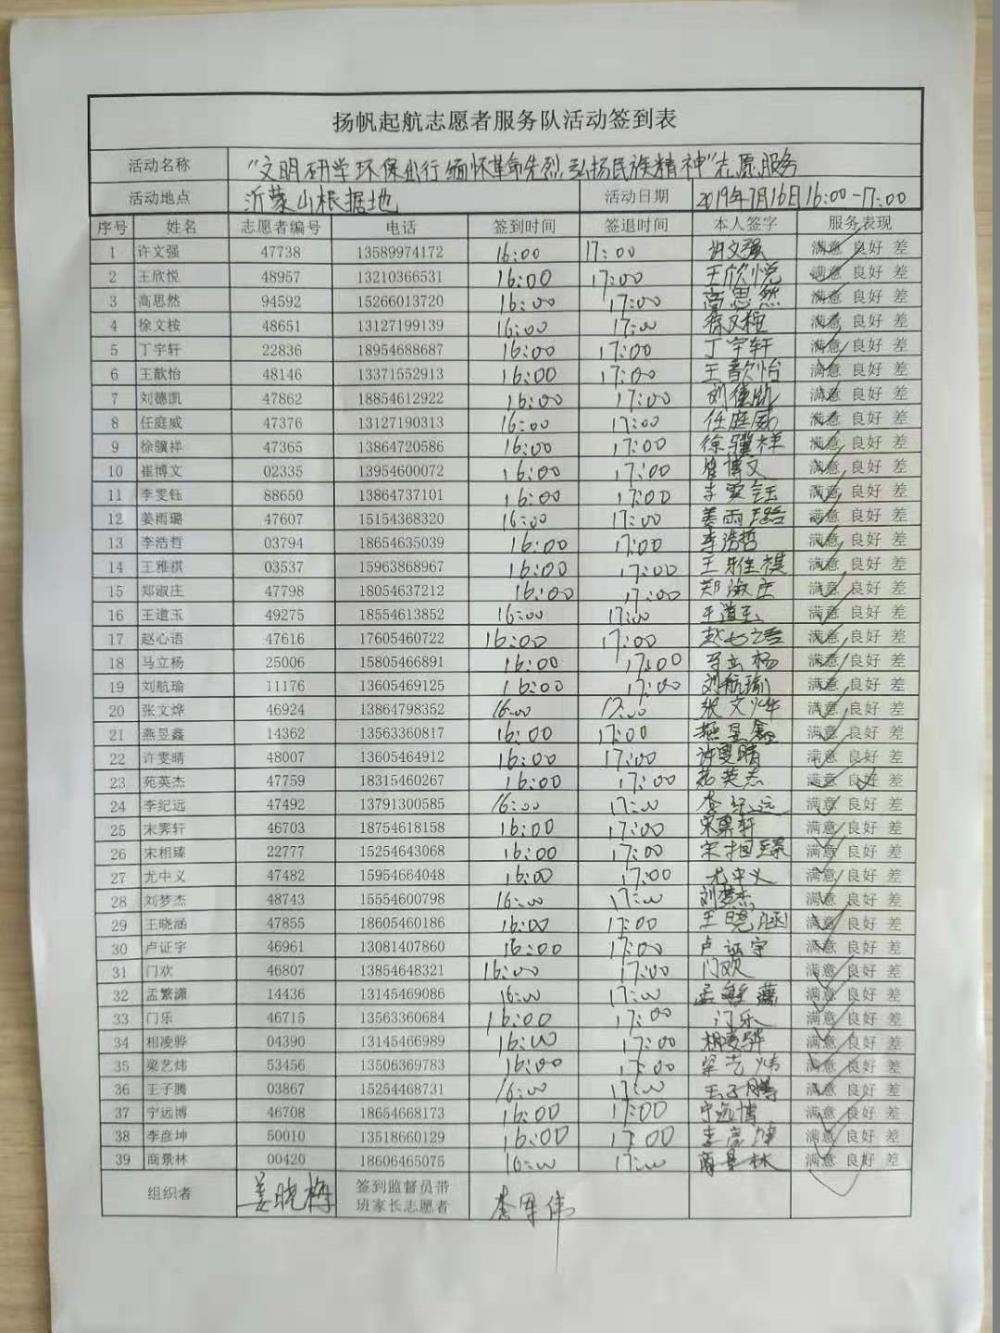 扬帆起航志愿者服务队活动签到表
活动名称 "文明研学环保出行缅怀革命先烈弘扬民族精神"志愿服务
活动地点 沂蒙山根据地 活动日期 2019年7月16日16:00-17:00
序号 姓名 志愿者编号 电话 签到时间 签退时间 本人签字 服务表现
1 许文强 47738 13589974172 16:00 17:00 许文强 满意 良好 差
2 王欣悦 48957 13210366531 16:00 17:00 王欣悦 满意 良好 差
3 高思然 94592 15266013720 16:00 17:00 高思然 满意 良好 差
4 徐文桉 48651 13127199139 16:00 17:00 徐文桉 满意 良好 差
5 丁宇轩 22836 18954688687 16:00 17:00 丁宇轩 满意 良好 差
6 王歆怡 48146 13371552913 16:00 17:00 王歆怡 满意 良好 差
7 刘德凯 47862 18854612922 16:00 17:00 刘德凯 满意 良好 差
8 任庭威 47376 13127190313 16:00 17:00 任庭威 满意 良好 差
9 徐骥祥 47365 13864720586 16:00 17:00 徐骥祥 满意 良好 差
10 崔博文 02335 13954600072 16:00 17:00 崔博文 满意 良好 差
11 李雯钰 88650 13864737101 16:00 17:00 李雯钰 满意 良好 差
12 姜雨璐 47607 15154368320 16:00 17:00 姜雨璐 满意 良好 差
13 李浩哲 03794 18654635039 16:00 17:00 李浩哲 满意 良好 差
14 王雅祺 03537 15963868967 16:00 17:00 王雅祺 满意 良好 差
15 郑淑庄 47798 18054637212 16:00 17:00 郑淑庄 满意 良好 差
16 王道玉 49275 18554613852 16:00 17:00 王道玉 满意 良好 差
17 赵心语 47616 17605460722 16:00 17:00 赵心语 满意 良好 差
18 马立杨 25006 15805466891 16:00 17:00 马立杨 满意 良好 差
19 刘航瑜 11176 13605469125 16:00 17:00 刘航瑜 满意 良好 差
20 张文烨 46924 13864798352 16:00 17:00 张文烨 满意 良好 差
21 燕昱鑫 14362 13563360817 16:00 17:00 燕昱鑫 满意 良好 差
22 许雯晴 48007 13605464912 16:00 17:00 许雯晴 满意 良好 差
23 苑英杰 47759 18315460267 16:00 17:00 苑英杰 满意 良好 差
24 李纪远 47492 13791300585 16:00 17:00 李纪远 满意 良好 差
25 宋霁轩 46703 18754618158 16:00 17:00 宋霁轩 满意 良好 差
26 宋相臻 22777 15254643068 16:00 17:00 宋相臻 满意 良好 差
27 尤中义 47482 15954664048 16:00 17:00 尤中义 满意 良好 差
28 刘梦杰 48743 15554600798 16:00 17:00 刘梦杰 满意 良好 差
29 王晓涵 47855 18605460186 16:00 17:00 王晓涵 满意 良好 差
30 卢证宇 46961 13081407860 16:00 17:00 卢证宇 满意 良好 差
31 门欢 46807 13854648321 16:00 17:00 门欢 满意 良好 差
32 孟繁潇 14436 13145469086 16:00 17:00 孟繁潇 满意 良好 差
33 门乐 46715 13563360684 16:00 17:00 门乐 满意 良好 差
34 相凌骅 04390 13145466989 16:00 17:00 相凌骅 满意 良好 差
35 梁艺炜 53456 13506369783 16:00 17:00 梁艺炜 满意 良好 差
36 王子腾 03867 15254468731 16:00 17:00 王子腾 满意 良好 差
37 宁远博 46708 18654668173 16:00 17:00 宁远博 满意 良好 差
38 李彦坤 50010 13518660129 16:00 17:00 李彦坤 满意 良好 差
39 商景林 00420 18606465075 16:00 17:00 商景林 满意 良好 差
组织者 姜晓梅 签到监督员带 李军伟
班家长志愿者